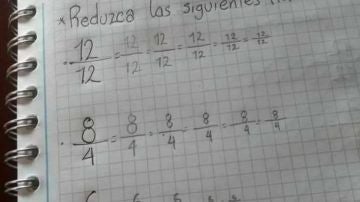 * Reduzca las siguientes
· 12/12 = 12/12 = 12/12 = 12/12 = 12/12 = 12/12
· 8/4 = 8/4 = 8/4 = 8/4 = 8/4 = 8/4